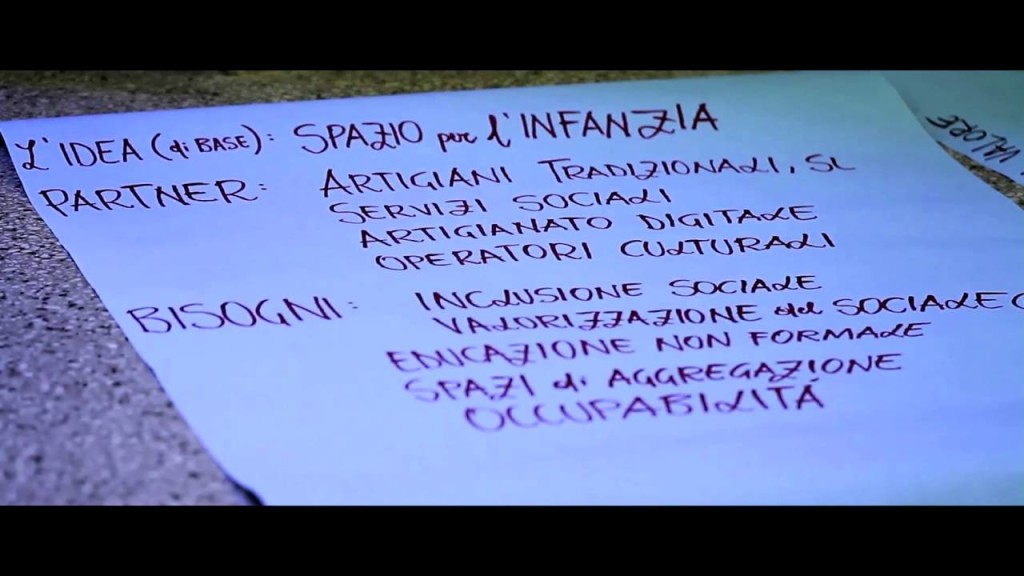 L'IDEA (di BASE): SPAZIO per l'INFANZIA
PARTNER: ARTIGIANI TRADIZIONALI, SL
SERVIZI SOCIALI
ARTIGIANATO DIGITALE
OPERATORI CULTURALI
BISOGNI: INCLUSIONE SOCIALE
VALORIZZAZIONE del SOCIALE (
EDUCAZIONE NON FORMALE
SPAZI di AGGREGAZIONE
OCCUPABILITÁ
VALORE